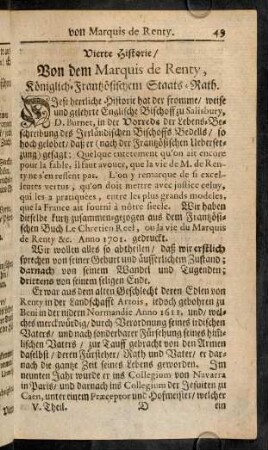 von Marquis de Renty. 49
Vierte Historie/
Von dem Marquis de Renty,
Königlich-Frantzösischem Staats-Rath.
Diese herrliche Historie hat der fromme/ weise
und gelehrte Englische Bischoff zu Salisbury,
D. Burnet, in der Vorrede der Lebens-Be-
schreibung des Irrländischen Bischoffs Bedells/ so
hoch gelobet/ daß er (nach der Frantzösischen Ueberset-
zung) gesagt: Quelque entetement qu'on ait encore
pour la fable, il faut avouer, que la vie de M. de Ren-
ty ne s'en ressent pas. L'on y remarque de si excel-
leures vertus, qu'on doit mettre avec justice celuy,
qui les a pratiquées, entre les plus grands modeles,
que la France ait fourni à nôtre siecle. Wir haben
dieselbe kurtz zusammen-gezogen aus dem Frantzösi-
schen Buch Le Chretien Reel, ou la vie du Marquis
de Renty &c. Anno 1701. gedruckt.
Wir wollen alles so abtheilen/ daß wir erstlich
sprechen von seiner Geburt und äusserlichen Zustand;
darnach von seinem Wandel und Tugenden;
drittens von seinem seligen Ende.
Er war aus dem alten Geschlecht derer Edlen von
Renty in der Landschafft Artois, jedoch gebohren zu
Beni in der nidern Normandie Anno 1611, und/ wel-
ches merckwürdig/ durch Verordnung seines irdischen
Vaters/ und nach sonderbarer Fürsehung seines himm-
lischen Vaters/ zur Tauff gebracht von den Armen
daselbst/ deren Fürstreher/ Rath und Vater/ er dar-
nach die gantze Zeit seines Lebens geworden. Im
neunten Jahr wurde er ins Collegium von Navarra
in Paris/ und darnach ins Collegium der Jesuiten zu
Caen, unter einem Præceptor und Hofmeister/ welcher
V. Theil. D ein